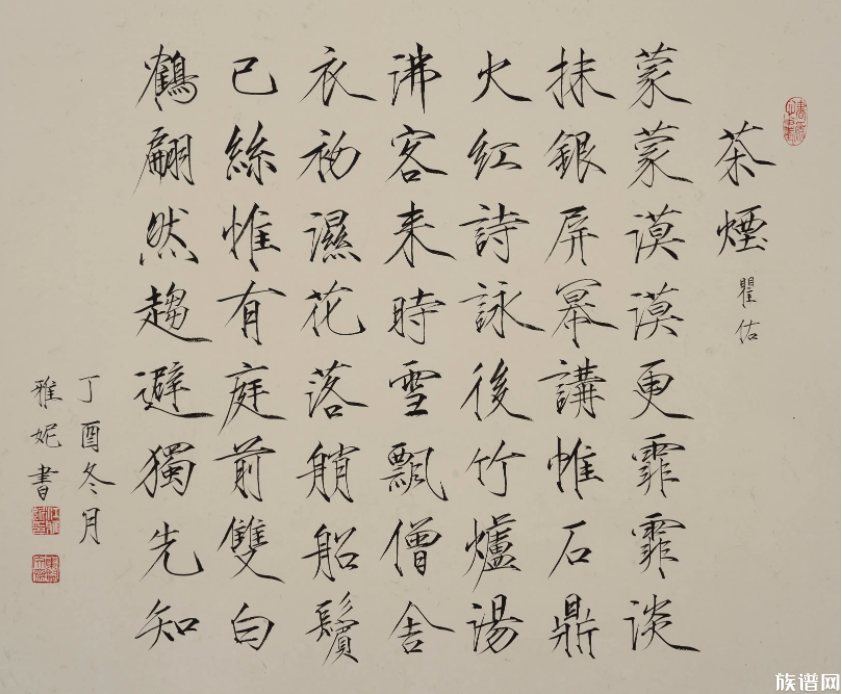 茶煙 瞿佑
蒙蒙漠漠更霏霏淡
抹銀屏冪講帷石鼎
火紅詩詠後竹爐湯
沸客来時雪飄僧舍
衣初濕花落艄船鬢
已絲惟有庭前雙白
鶴翩然趨避獨先知
丁酉冬月
雅妮書
族谱网